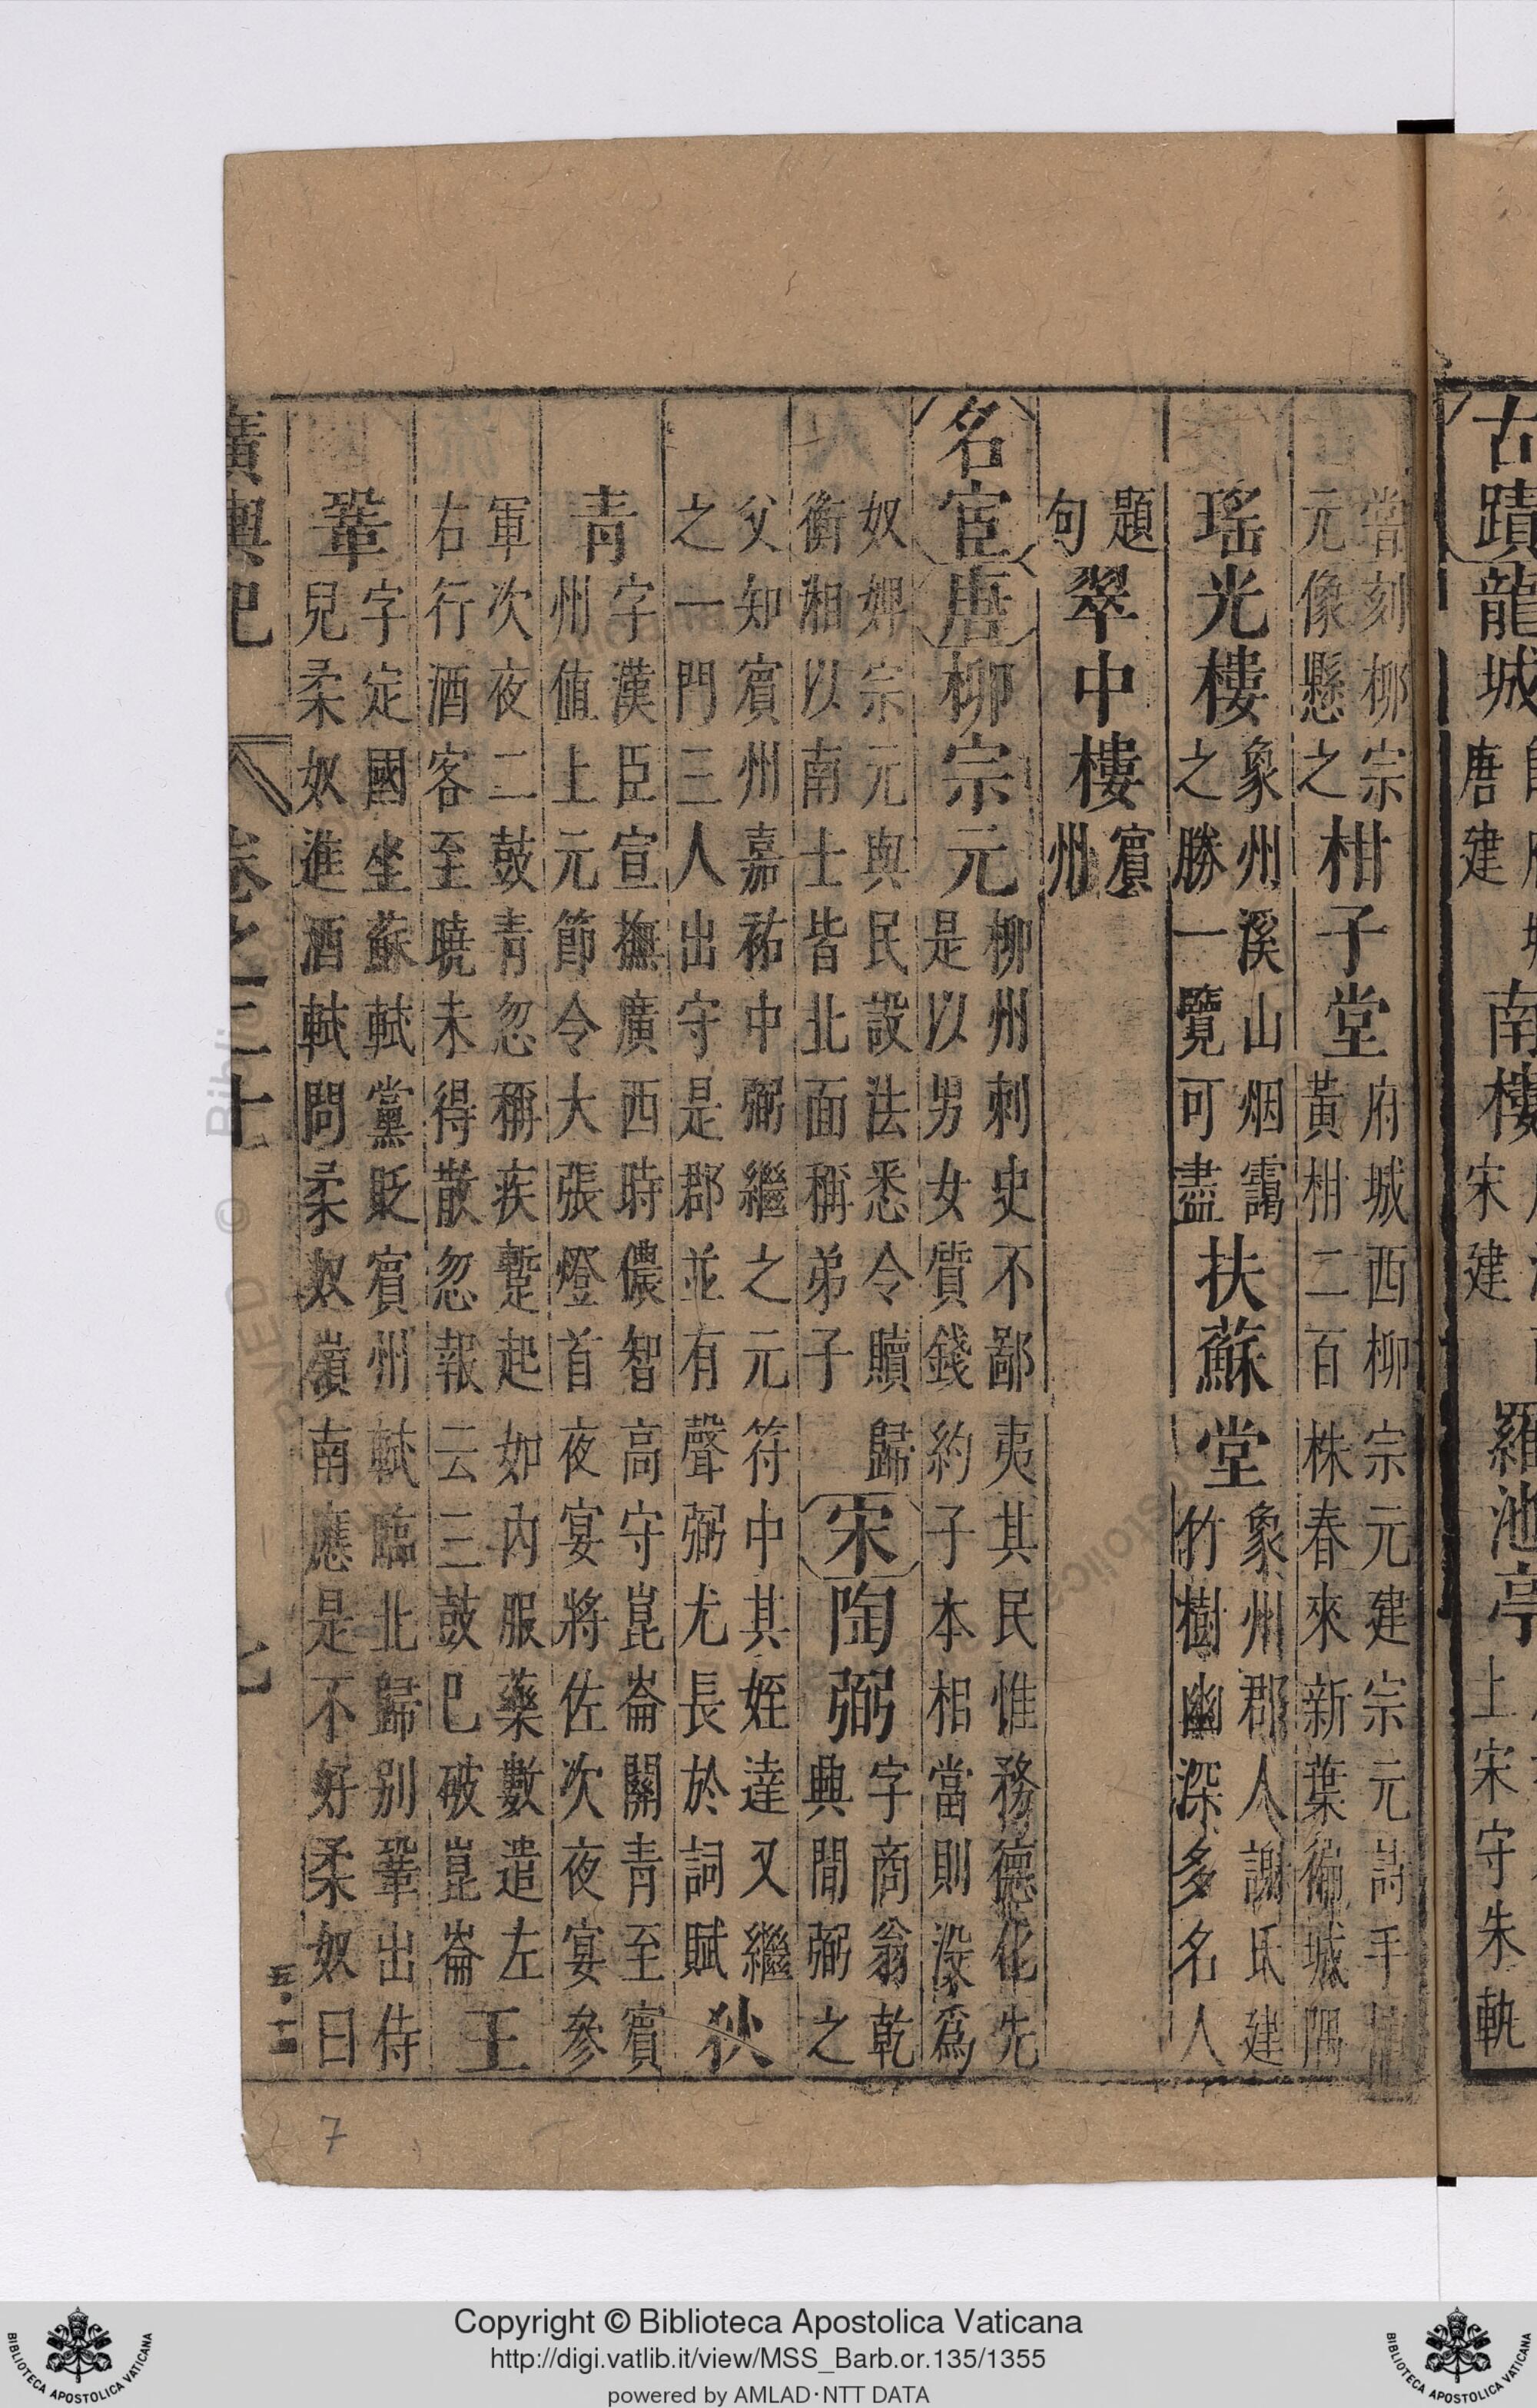 古蹟龍城唐建南樓宋建羅池亭上宋守朱軌
當刻柳宗元像懸之柑子堂府城西柳宗元建宗元詩手種黃柑二百株春來新葉徧城隅
瑤光樓象州溪山烟靄之勝一覽可盡扶蘇堂象州郡人謝氏建竹樹幽深多名人
題句翠中樓賓州
名宦唐柳宗元柳州刺史不鄙夷其民惟務德化先是以男女質錢約子本相當則没爲
奴婢宗元與民設法悉令贖歸衡湘以南士皆北面稱弟子宋陶弼字商翁乾興間弼之
父知賓州嘉祐中弼繼之元符中其姪逵又繼之一門三人出守是郡並有聲弼尤長於詞賦狄
青字漢臣宣撫廣西時儂智高守崑崙關青至賓州値上元節令大張燈首夜宴將佐次夜宴參
軍次夜二鼓青忽稱疾蹔起如內服藥數遣左右行酒客至曉未得散忽報云三鼓已破崑崙王
鞏字定國坐蘇軾黨貶賓州軾臨北歸别鞏出侍兒柔奴進酒軾問柔奴嶺南應是不好柔奴曰
廣輿記 卷之二十 七
7
Copyright © Biblioteca Apostolica Vaticana
http://digi.vatlib.it/view/MSS_Barb.or.135/1355
powered by AMLAD·NTT DATA